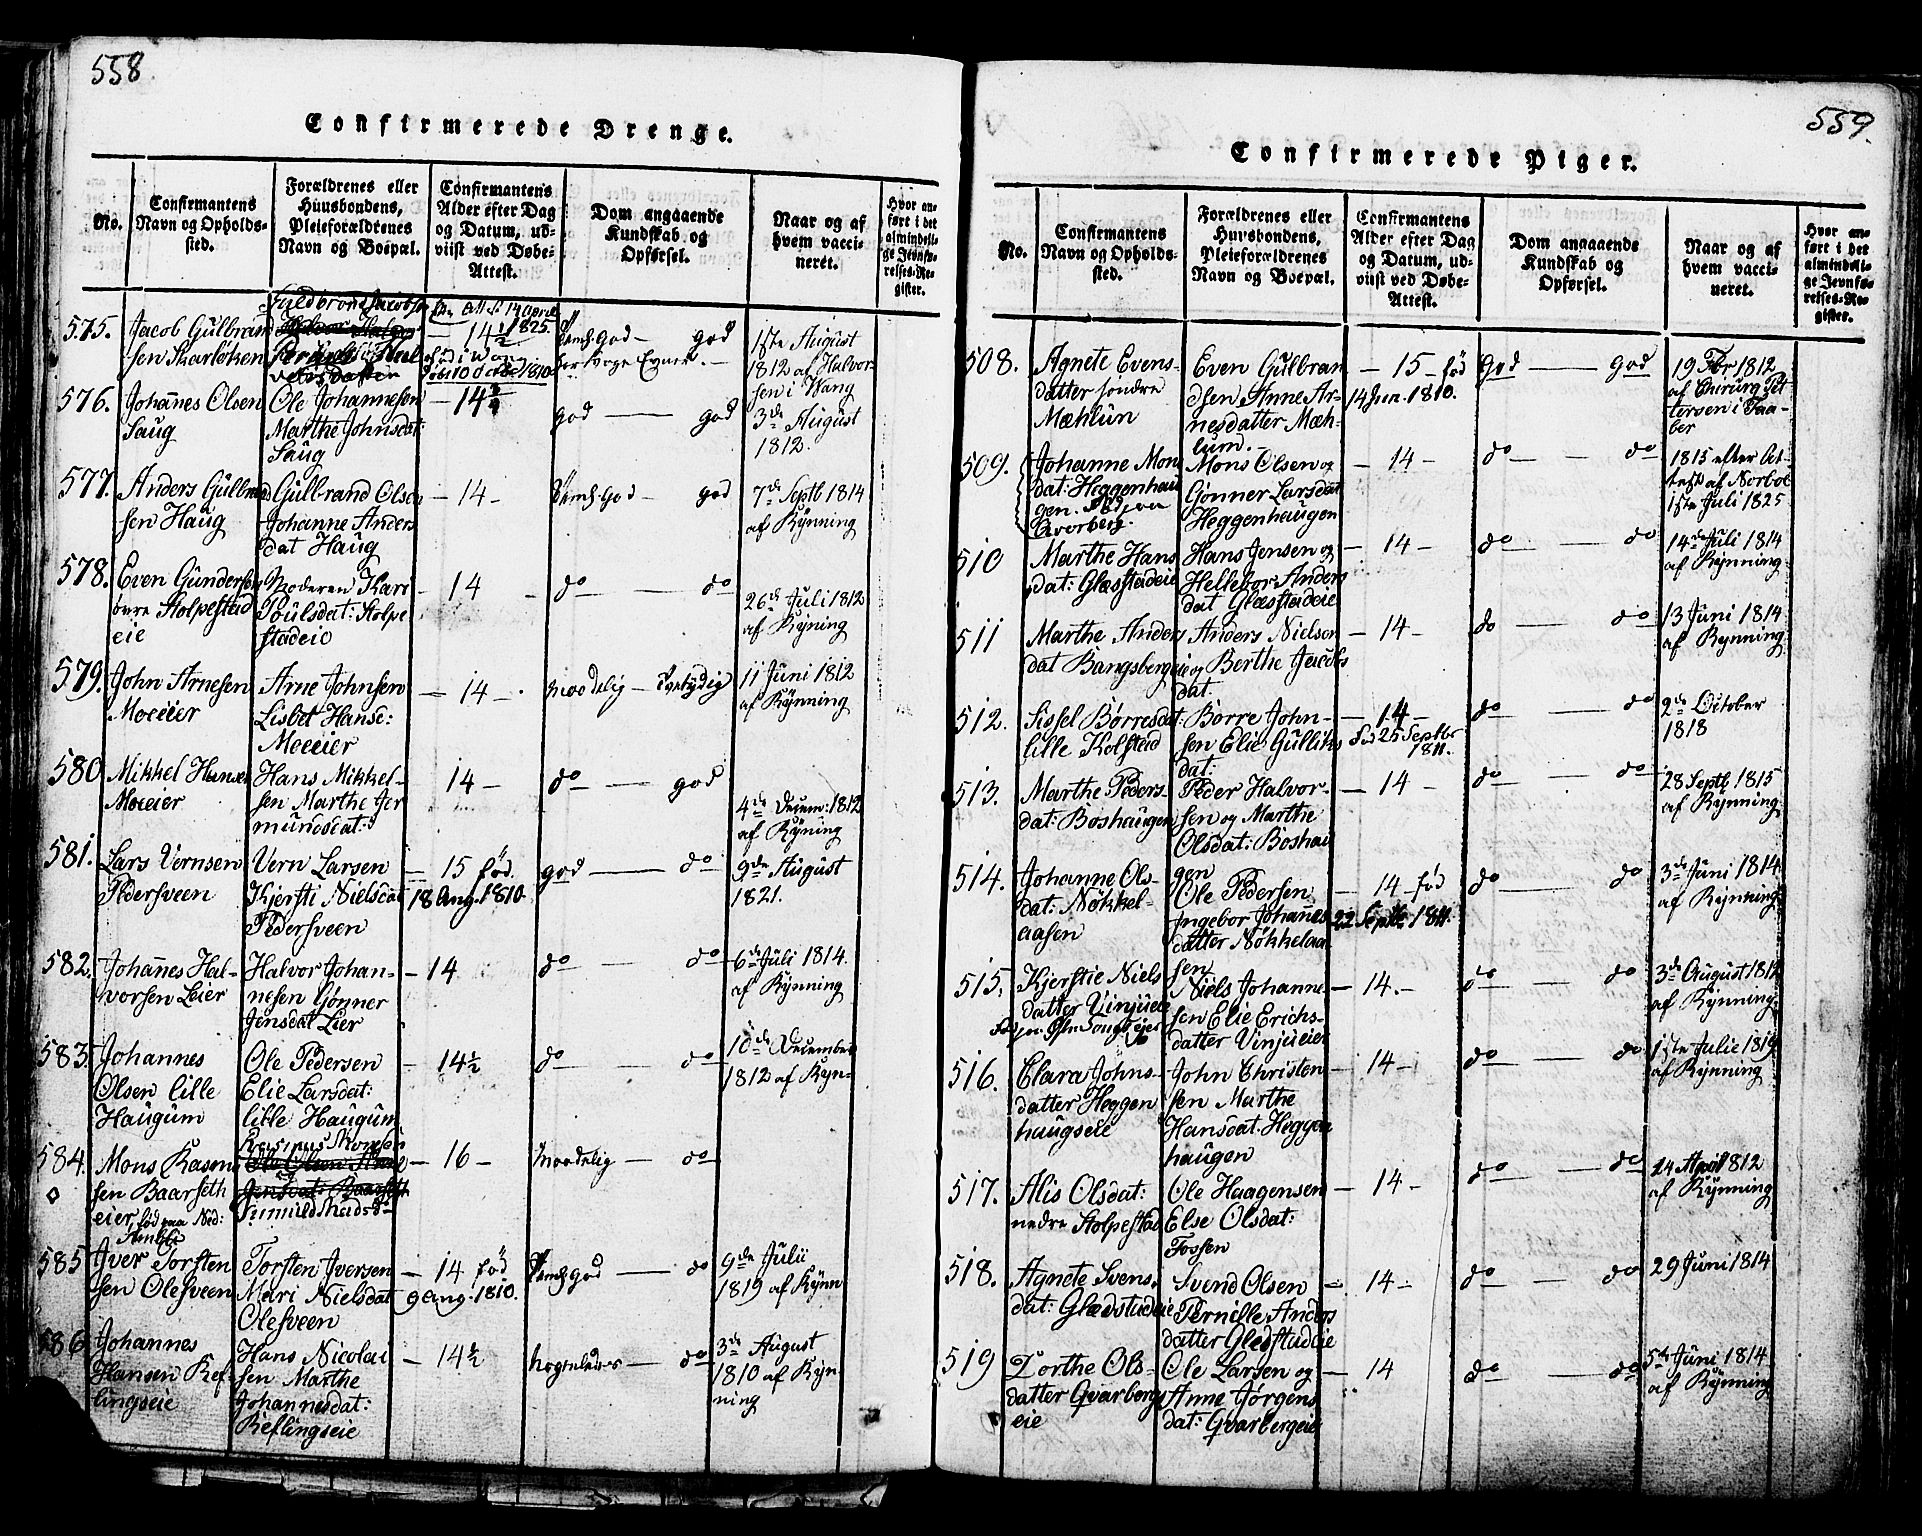 558
Confirmerede Drenge.
No.
Confirmantens
Navn og Opholds-
sted.
Forældrenes eller
Huusbondens,
Pleieforældrenes
Navn og Boepæl.
Confirmantens
Alder efter Dag
og Datum, ud-
viist ved Døbe-
Attest.
Dom angaaende
Kundskab og
Opførsel.
Naar og af
hvem vacci-
neret.
Hvor an-
ført i det
almindeli-
ge Jevnfø-
relses-Re-
gister.
575.
Jacob Gulbran
sen Skarløken
14½
god
1ste August
1812 af Halvor-
sen i Wang
576.
Johannes Olsen
Saug
Ole Johannesen
Marthe Johnsdat:
Saug
god — god
3de August
1812.
577.
Anders Gulbrand
sen Haug
Gulbrand Olsen
Johanne Anders
dat Haug
— 14 —
god
7de Septb 1814
af Kynning
578.
Even Gundersen
øvre Stolpestad
eie
Moderen Kari
Poulsdat: Stolpe
stadeie
14
do — do
26de Juli 1812
af Kyning
579.
John Arnesen
Moeeier
Arne Johnsen
Lisbet Hansd:
Moeeier
— 14 —
maadelig —
11 Juni 1812
af Kynning
580
Mikkel Hansen
Moeeier
Hans Mikkel-
sen Marthe Jer
mundsdat:
14 —
do — god
4de Decem: 1812
af Kyning
581.
Lars Vernsen
Pedersveen
Vern Larsen
Kjersti Nielsdat
Pedersveen
— 15 fød
18 Aug. 1810.
god — do
9de August
1821.
582.
Johannes Hal-
vorsen Leier
Halvor Johan-
nesen Gønner
Jensdat Leier
— 14
do — do
6de Juli 1814.
af Kynning
583.
Johannes
Olsen lille
Haugum
Ole Pedersen
Elie Larsdat:
lille Haugum
— 14½
do — do
10de December
1812 af Kyn-
584.
Mons Rasmu
sen Baarseth
eier fød paa Ned:
— 16 —
maadelig — do
585
Iver Torsten
sen Olesveen
Torsten Iversen
Mari Nielsdat
Olesveen
— 14 fød
9 Aug. 1810.
god — do
9de Julii
1819 af Kynn
586
Johannes
Hansen Kef-
lingseie
Hans Nicolai
sen Marthe
Johannesdat:
Keflingseie
— 14½
do
3de August
1810 af Kyn
ning
559.
Confirmerede Piger.
No.
Confirmantens
Navn og Opholds-
sted.
Forældrenes eller
Huusbondens,
Pleieforældrenes
Navn og Boepæl.
Confirmantens
Alder efter Dag
og Datum, ud-
viist ved Døbe-
Attest.
Dom angaaende
Kundskab og
Opførsel.
Naar og af
hvem vacci-
neret.
Hvor an-
ført i det
almindeli-
ge Jevnfø-
relses-Re-
gister.
508.
Agnete Evens-
datter søndre
Mæhlun
Even Gulbran
dsen Anne Ar-
nesdatter Mæh-
lum.
— 15 — fød
14 Jun. 1810.
God — God
19 Fbr 1812
af Chirurg Pet
tersen i Faa-
ber
509.
Johanne Mons
dat: Heggenhau
gen. Fød paa
Qvorberg.
Mons Olsen og
Gønner Larsdat
Heggenhaugen
— 14 —
do — do
1815 efter At-
test af Norboe
1ste Juli 1825
510
Marthe Hans
dat: Glæsstadeie
Hans Jensen og
Hellebor Anders
dat Glæsstadeie
— 14 —
do — do
14de Juli 1814
af Kynning
511
Marthe Anders
dat Bangsbergeie
Anders Nielsen
og Berthe Jacobs
dat:
— 14 —
do — do
13 Juni 1814
af Kynning
512.
Sissel Børresdat:
lille Kolstad
Børre John-
sen Elie Gulliks
dat:
— 14 —
25 Septbr
1811.
do — do
2de October
1818
513.
Marthe Peders-
dat: Boshaugen
Peder Halvor-
sen og Marthe
Olsdat: Boshau
gen
— 14 —
do — do
28 Septb 1815
af Kynning
514.
Johanne Ols-
dat: Nøkkel-
aasen
Ole Pedersen
Ingebor Johannes
datter Nøkkelaa
sen
— 14 — fød
22 Septbr 1811.
do — do
3de Juni 1814
af Kynning
515.
Kjerstie Niels
datter Vinjueie
Niels Johanne-
sen Elie Erichs-
datter Vinjueie
— 14. —
do — do
3de August 1812
af Kynning.
516.
Clara Johns-
datter Heggen
haugseie
John Christen
sen Marthe
Hansdat Heggen
haugen
— 14 —
do — do
1ste Julie 1819
af Kynning
517.
Alis Olsdat:
nedre Stolpestad
Ole Haagensen
Else Olsdat:
Fossen
— 14 —
do — do
14 April 1812
af Kynning
518.
Agnete Svens-
dat: Glædstudeie
Svend Olsen
Pernille Anders
datter Gledstudeie
— 14 —
do — do
29 Juni 1814
519
Dorthe Ols-
datter Qvarbergs
eie
Ole Larsen og
Anne Jørgens
dat: Qvarbergeie
— 14
do — do
5te Juni 1814
af Kynning